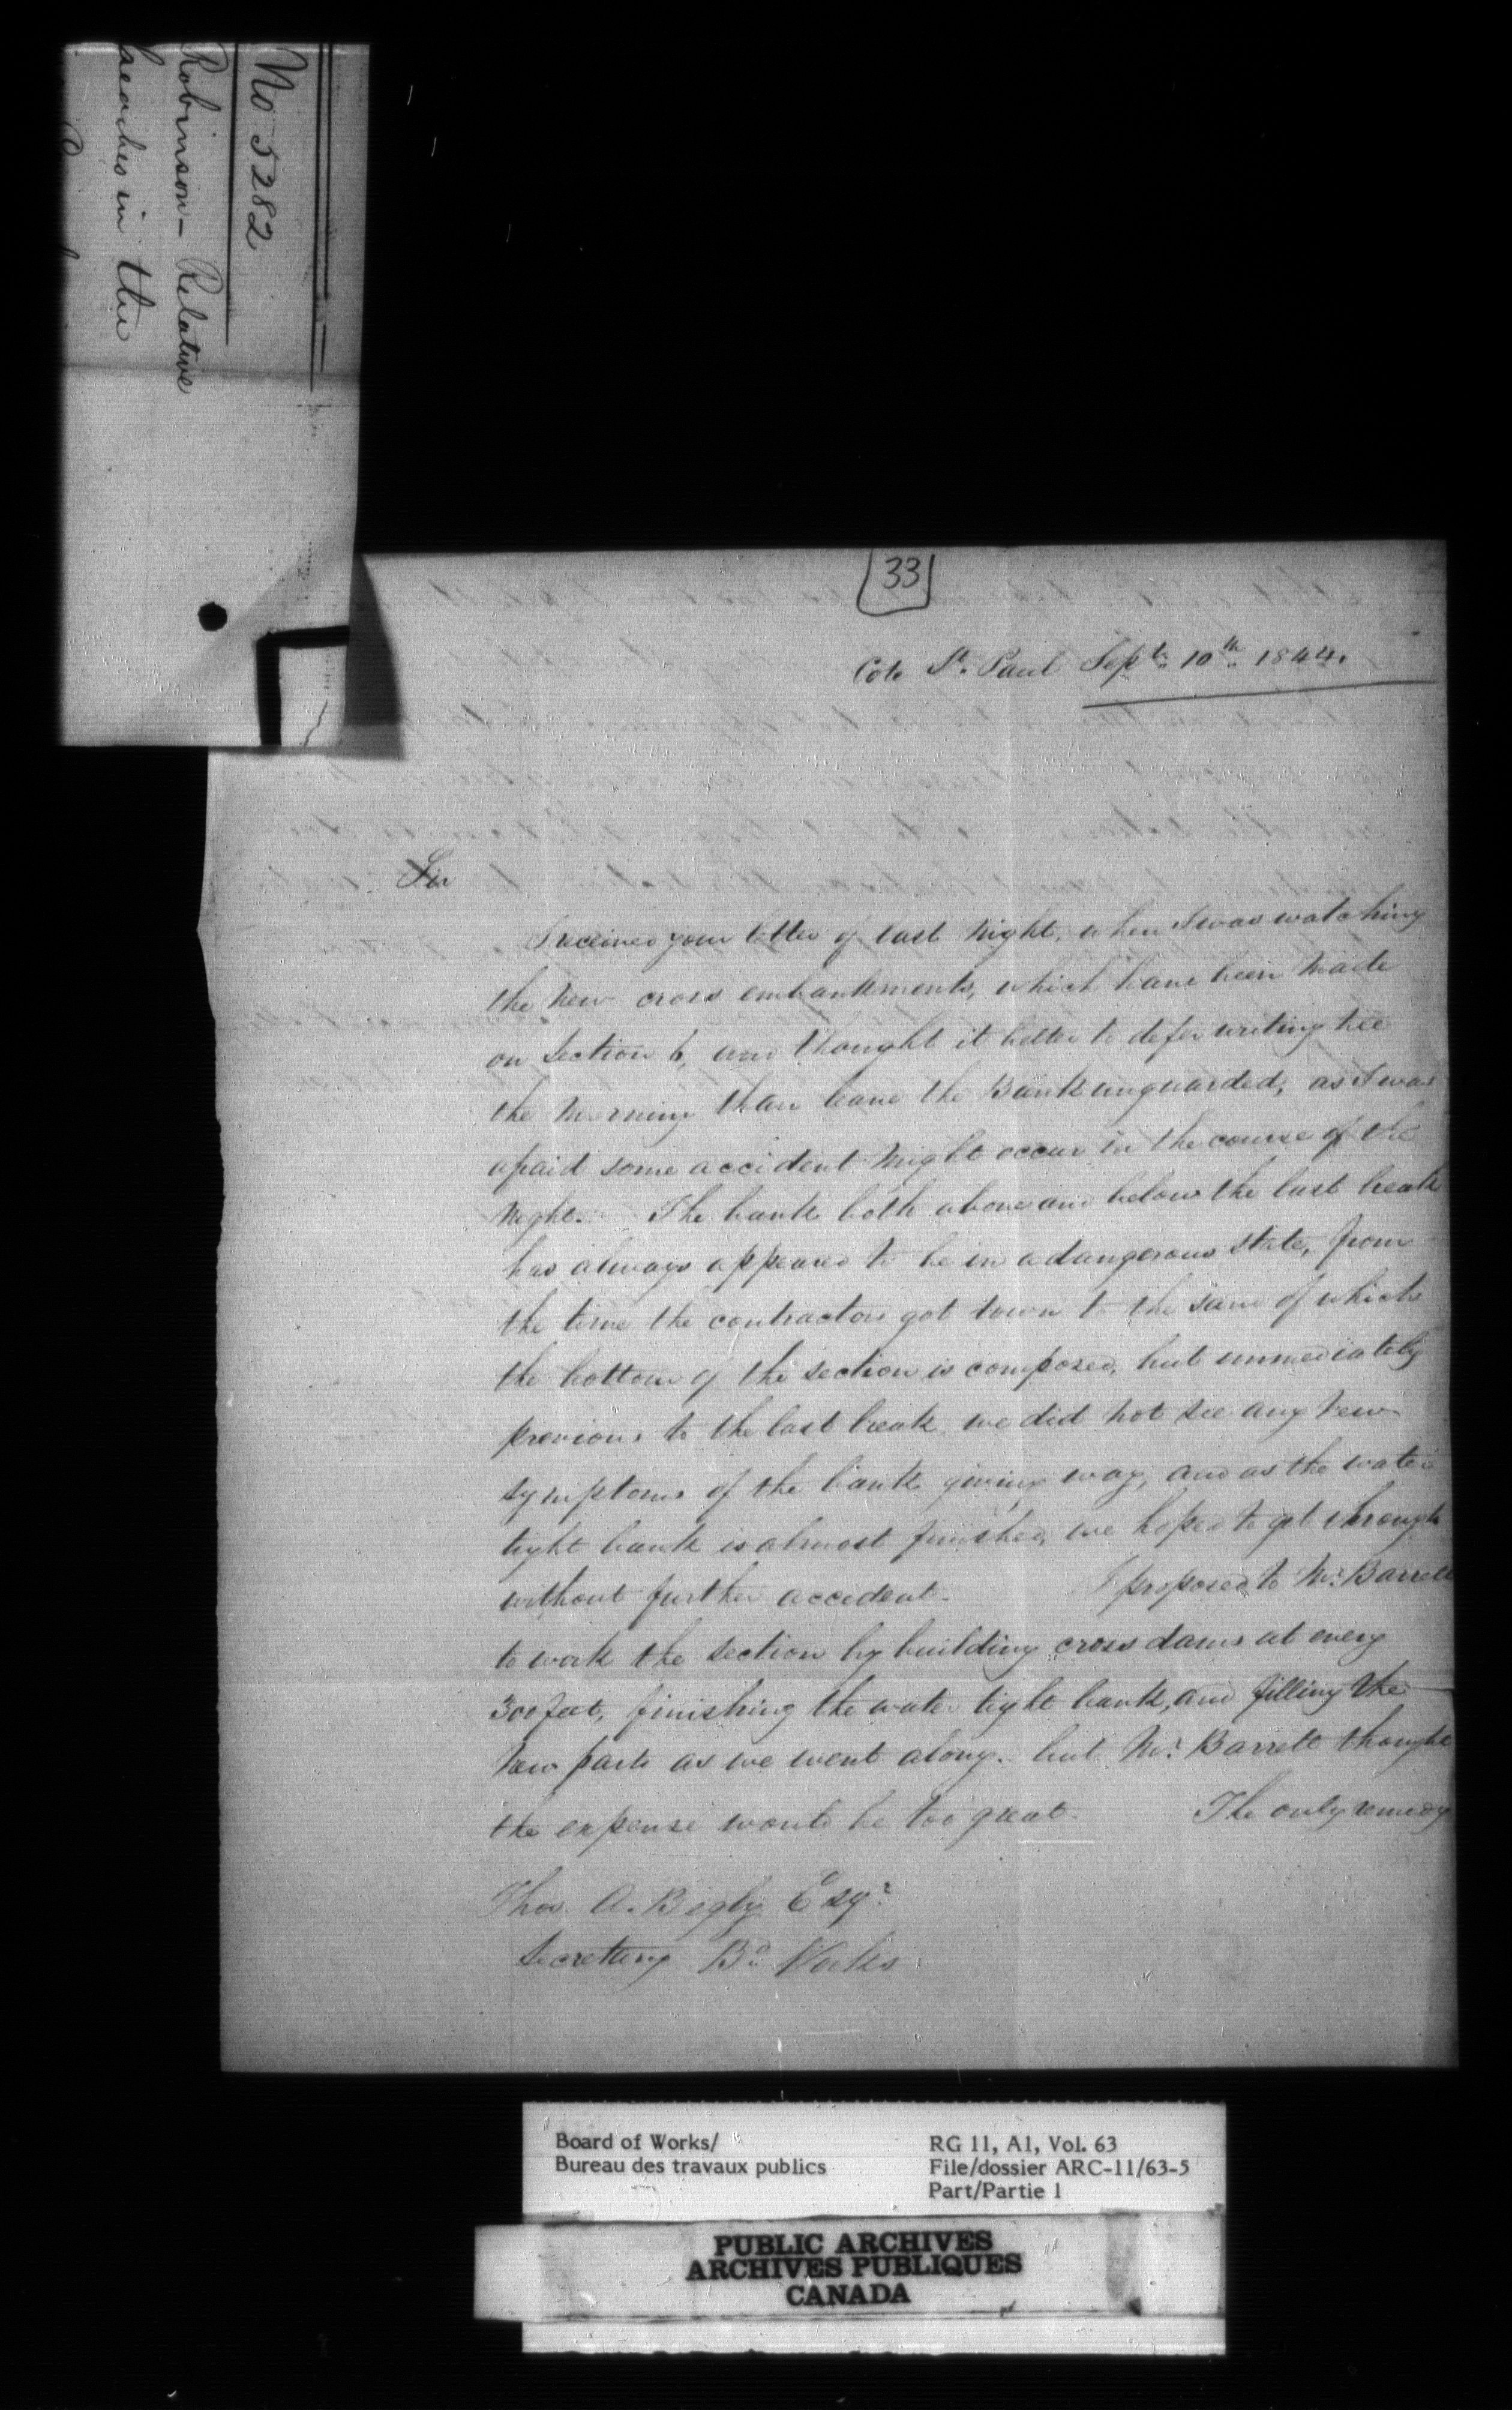 No 5282
Robinson - Relative
breaches in the
33
Cote St. Paul Sept. 10th 1844.
Sir
I received your letter of last night, when I was watching
the new cross embankments, which have been made
on Section 6, and thought it better to defer writing till
the morning than leave the Bank unguarded, as I was
afraid some accident might occur in the course of the
night. The bank both above and below the last break
has always appeared to be in a dangerous state, from
the time the contractors got down to the sand of which
the bottom of the section is composed, but immediately
previous to the last break we did not see any new
symptoms of the bank giving way, and as the water
tight bank is almost finished, we hoped to get through
without further accident. I proposed to Mr. Barrett
to work the section by building cross dams at every
300 feet, finishing the water tight bank, and filling the
new parts as we went along. but Mr. Barrett thought
the expense would be too great. The only remedy
Thos. A. Begly Esqr.
Secretary Bd. Works
Board of Works/
Bureau des travaux publics
RG 11, A1, Vol. 63
File/dossier ARC-11/63-5
Part/Partie 1
PUBLIC ARCHIVES
ARCHIVES PUBLIQUES
CANADA